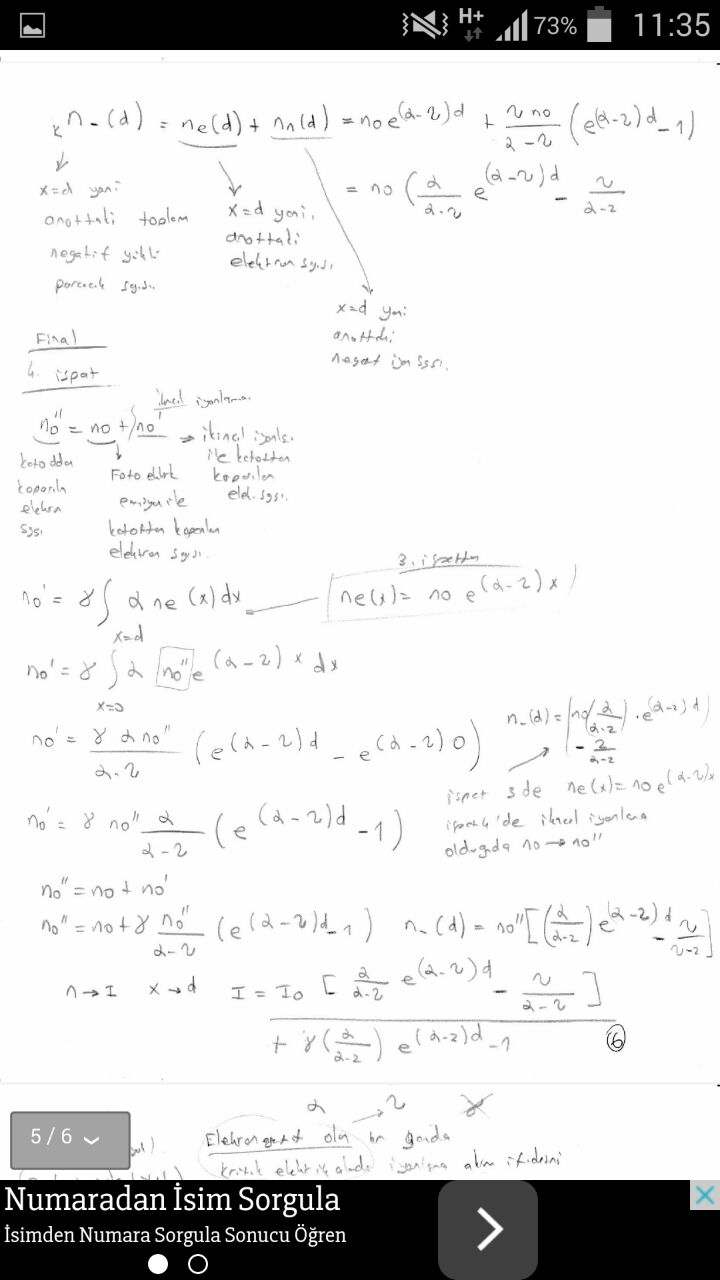 H+ 73% 11:35
n-(d) = ne(d) + nn(d) = no e^(α-η)d + η no/α-η (e^(α-η)d - 1)
= no (α/α-η e^(α-η)d - η/α-η
x=d yani
anottaki toplam
negatif yüklü
parçacık sysı.
x=d yani,
anottaki
elektron sysı
x=d yani
anottaki
negatif iyon sysı.
Final
4. ispat
ikincil iyonlama
no'' = no + no' → ikincil iyonla.
ile katottan
koparılan
elek. sysı.
katoddan
koparılan
elektron
sysı
Foto elektrik
emisyon ile
katottan koparılan
elektron sysı.
3. ispattan
no' = γ ∫ α ne(x)dx
x=d
ne(x) = no e^(α-η)x
no' = γ ∫ α no'' e^(α-η)x dx
x=0
no' = γ α no''/α-η (e^(α-η)d - e^(α-η)0)
n-(d) = (no(α/α-η) . e^(α-η)d
- η/α-η
ispat 3 de ne(x) = no e^(α-η)x
ispat 4'de ikincil iyonlama
olduğunda no → no''
no' = γ no'' α/α-η (e^(α-η)d - 1)
no'' = no + no'
no'' = no + γ no''/α-η (e^(α-η)d - 1) n-(d) = no''[(α/α-η) e^(α-η)d - η/η-η]
n → I x → d I = Io [α/α-η e^(α-η)d - η/α-η]
+ γ(α/α-η) e^(α-η)d - 1
6
α → η γ
5 / 6
Elektronegatif olan bir gazda
kritik elektrik alanda iyonlaşma akım ifadesini
Numaradan İsim Sorgula
İsimden Numara Sorgula Sonucu Öğren